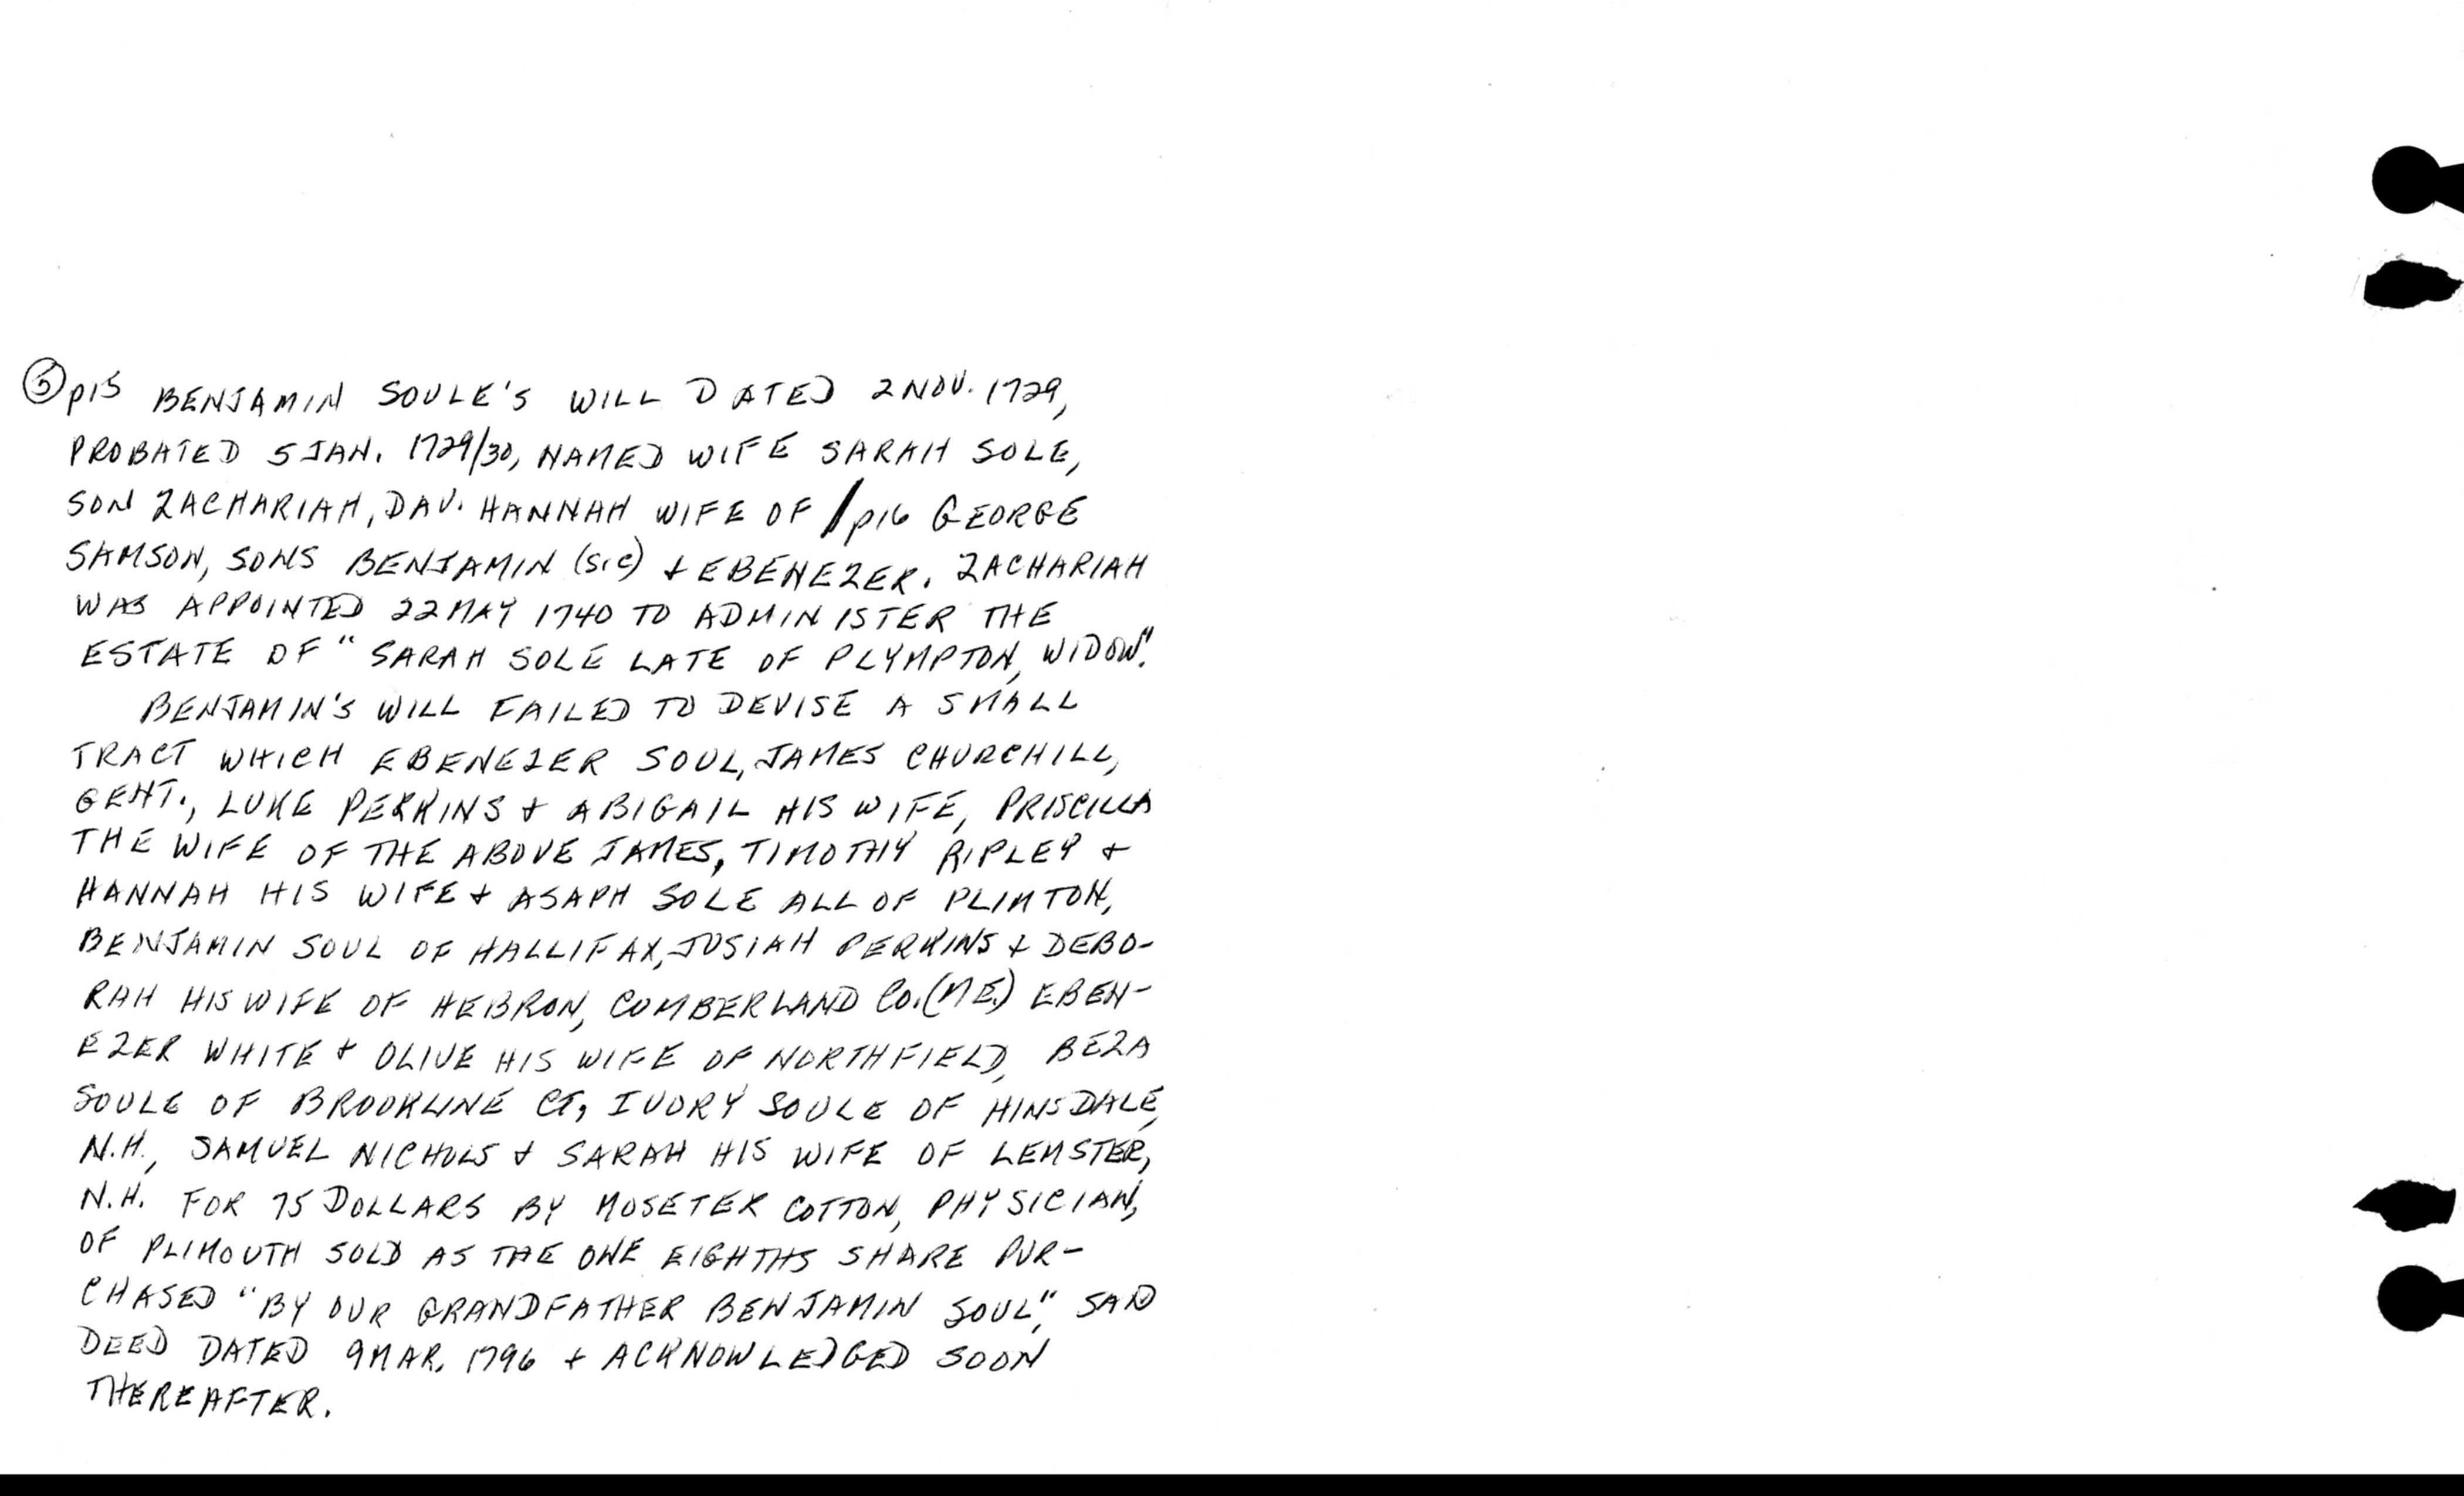 ⑤ p15 BENJAMIN SOULE'S WILL DATED 2 NOV. 1729,
PROBATED 5 JAN. 1729/30, NAMED WIFE SARAH SOLE,
SON ZACHARIAH, DAU. HANNAH WIFE OF /p16 GEORGE
SAMSON, SONS BENJAMIN (sic) + EBENEZER. ZACHARIAH
WAS APPOINTED 22 MAY 1740 TO ADMINISTER THE
ESTATE OF "SARAH SOLE LATE OF PLYMPTON, WIDOW".
BENJAMIN'S WILL FAILED TO DEVISE A SMALL
TRACT WHICH EBENEZER SOUL, JAMES CHURCHILL,
GENT., LUKE PERKINS + ABIGAIL HIS WIFE, PRISCILLA
THE WIFE OF THE ABOVE JAMES, TIMOTHY RIPLEY +
HANNAH HIS WIFE + ASAPH SOLE ALL OF PLIMTON,
BENJAMIN SOUL OF HALLIFAX, JOSIAH PERKINS + DEBO-
RAH HIS WIFE OF HEBRON, CUMBERLAND CO. (ME.) EBEN-
EZER WHITE + OLIVE HIS WIFE OF NORTHFIELD, BEZA
SOULE OF BROOKLINE CT, IVORY SOULE OF HINSDALE,
N.H., SAMUEL NICHOLS + SARAH HIS WIFE OF LEMSTER,
N.H. FOR 75 DOLLARS BY MOSETER COTTON, PHYSICIAN,
OF PLIMOUTH SOLD AS THE ONE EIGHTHS SHARE PUR-
CHASED "BY OUR GRANDFATHER BENJAMIN SOUL", SAID
DEED DATED 9 MAR. 1796 + ACKNOWLEDGED SOON
THEREAFTER.